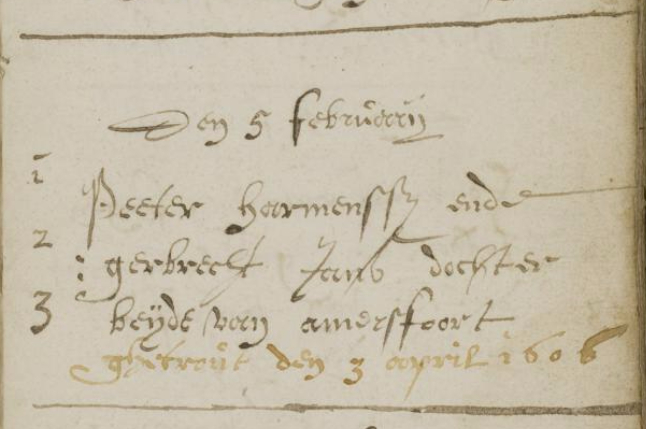 Den 5 februarij
1
Peeter harmenssz ende
2
gerbrecht Jans dochter
3
beyde van amersfoort
ghetrout den 3 april 1606